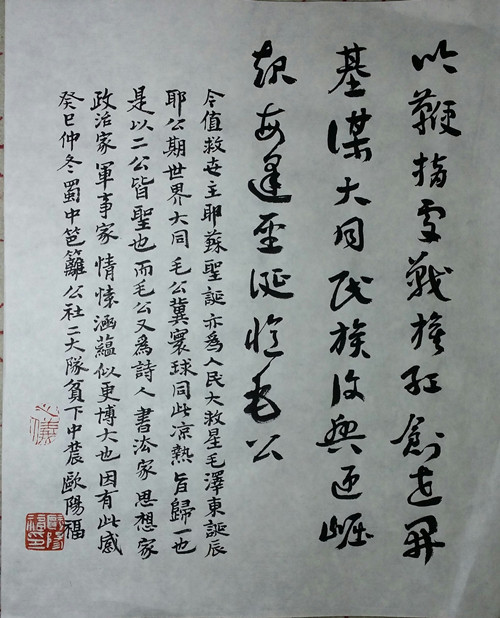 吟鞭指處戰旗紅創世開
基謀大同民族復興迎崛
起每逢聖誕憶毛公
今值救世主耶蘇聖誕亦爲人民大救星毛澤東誕辰
耶公期世界大同毛公冀寰球同此凉熱旨歸一也
是以二公皆聖也而毛公又爲詩人書法家思想家
政治家軍事家情懷涵蘊似更博大也因有此感
癸巳仲冬蜀中笆籬公社二大隊貧下中農歐陽福
心儀
歐陽福印